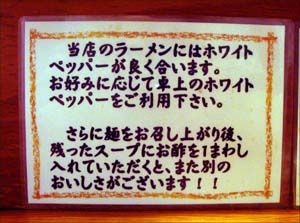 当店のラーメンにはホワイト
ペッパーが良く合います。
お好みに応じて卓上のホワイト
ペッパーをご利用下さい。
さらに麺をお召し上がり後、
残ったスープにお酢を1まわし
入れていただくと、また別の
おいしさがございます！！